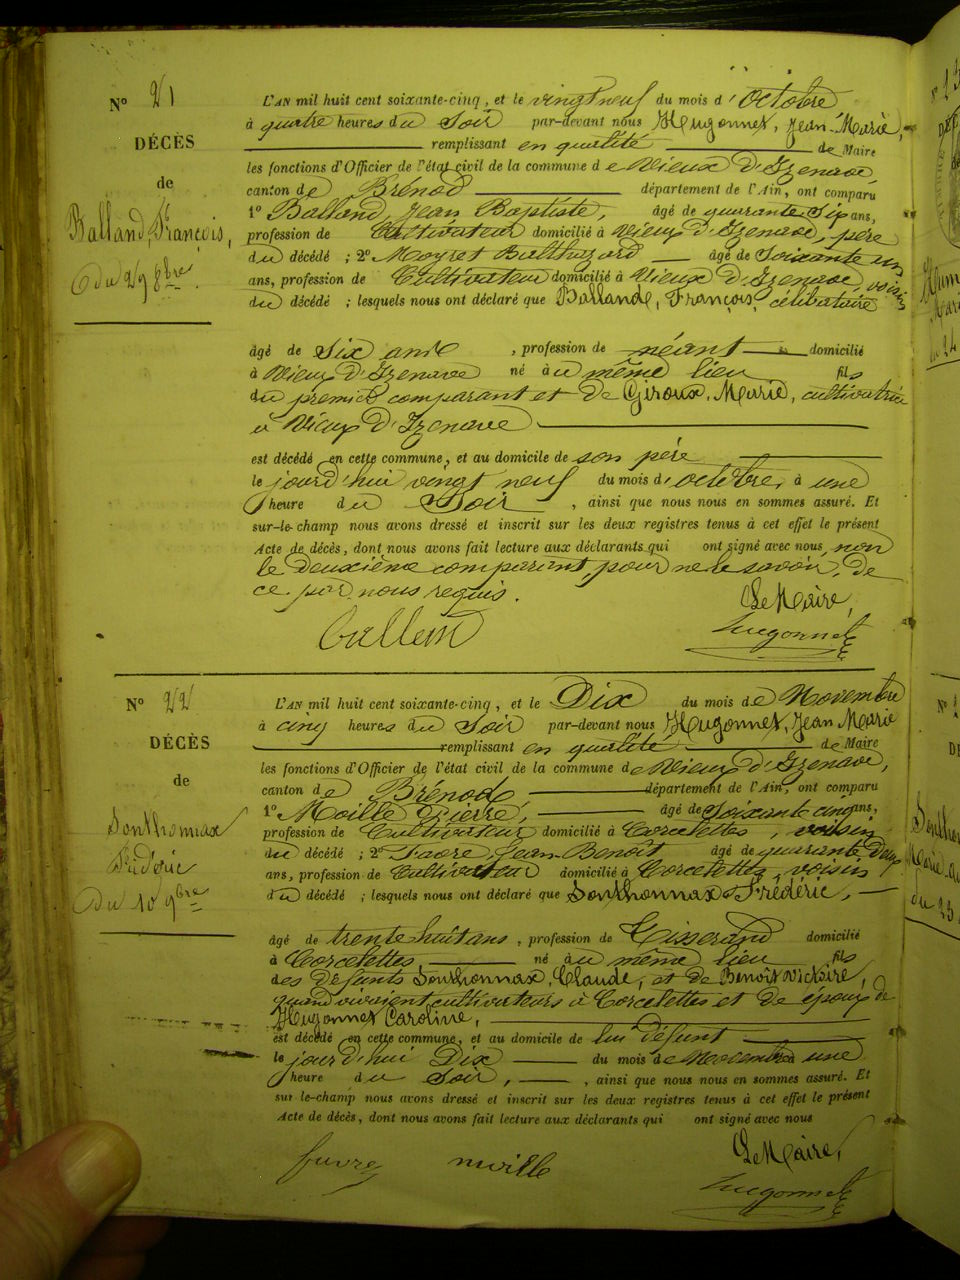 N° 21
DÉCÈS
de
Balland, Fs
François,
du 29 8bre
L'AN mil huit cent soixante-cinq, et le vingt neuf du mois d'Octobre
à quatre heures du Soir par-devant nous Hugonnet, Jean-Marie,
remplissant en qualité de Maire
les fonctions d'Officier de l'état civil de la commune de Vieux d'Izenave,
canton de Brénod département de l'Ain, ont comparu
1° Balland, Jean Baptiste, âgé de quarante Six ans,
profession de Cultivateur domicilié à Vieux d'Izenave, père
du décédé ; 2° Moyret Balthazard âgé de Soixante un
ans, profession de Cultivateur domicilié à Vieux d'Izenave, voisin
du décédé ; lesquels nous ont déclaré que Ballande, François, célibataire
âgé de Six ans , profession de néant domicilié
à Vieux d'Izenave né au même lieu fils
du premier comparant et de Giroux, Marie, cultivatrice
à Vieux d'Izenave
est décédé en cette commune, et au domicile de son père
le jourd'hui vingt neuf du mois d'octobre, à une
heure du Soir , ainsi que nous nous en sommes assuré. Et
sur-le-champ nous avons dressé et inscrit sur les deux registres tenus à cet effet le présent
Acte de décès, dont nous avons fait lecture aux déclarants qui ont signé avec nous, non
le deuxième comparant, pour ne le savoir, de
ce par nous requis.
Le Maire,
hugonnet
N° 22
DÉCÈS
de
Sonthonnax
Frédéric
du 10 9bre
L'AN mil huit cent soixante-cinq, et le Dix du mois de Novembre
à cinq heures du Soir par-devant nous Hugonnet, Jean Marie
remplissant en qualité de Maire
les fonctions d'Officier de l'état civil de la commune de Vieux d'Izenave,
canton de Brénod département de l'Ain, ont comparu
1° Moille Pierre, âgé de Soixante cinq ans,
profession de Cultivateur domicilié à Corcelettes, voisin
du décédé ; 2° Favre Jean-Benoît âgé de quarante deux
ans, profession de Cultivateur domicilié à Corcelettes, voisin
du décédé ; lesquels nous ont déclaré que Sonthonnax Frédéric,
âgé de trente huit ans , profession de Tisserand domicilié
à Corcelettes, né au même lieu fils
des défunts Sonthonnax, Claude, et de Benoît Victoire,
quand vivaient cultivateurs à Corcelettes et de époux de
Hugonnet Caroline,
est décédé en cette commune, et au domicile de lui défunt
le jourd'hui Dix du mois de Novembre à une
heure du Soir, , ainsi que nous nous en sommes assuré. Et
sur le-champ nous avons dressé et inscrit sur les deux registres tenus à cet effet le présent
Acte de décès, dont nous avons fait lecture aux déclarants qui ont signé avec nous
Le Maire,
favre
hugonnet